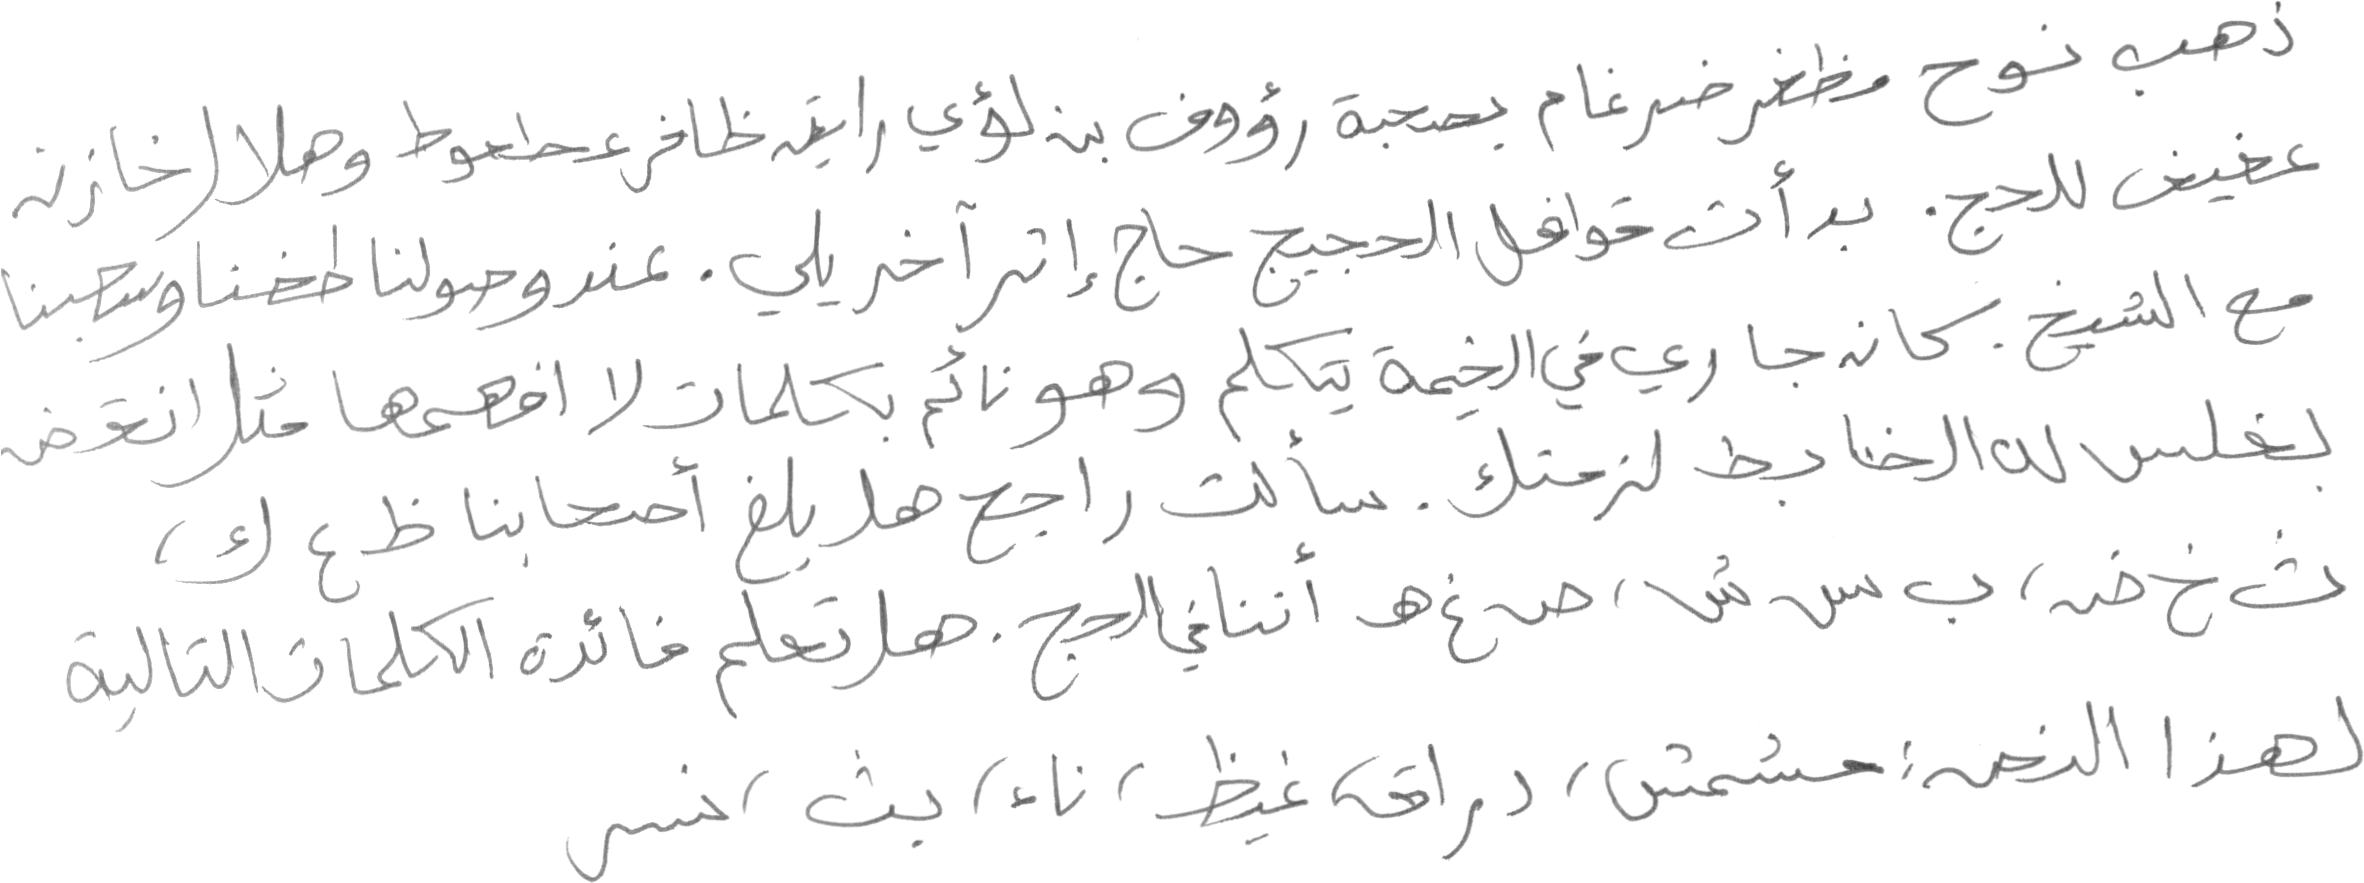 ذهب نوح مظفر ضرغام بصحبة رؤوف بن لؤي رايق ظافر عطعوط وهلال خازن
عفيف للحج. بدأت قوافل الحجيج حاج إثر آخر يلي. عند وصولنا طفنا وسجبنا
مع الشيخ. كان جاري في الخيمة يتكلم وهو نائم بكلمات لا افهمها مثل انقض
بغلس له الضابط لزمتك. سألت راجح هل يلغ أصحابنا ظ ع ك،
ث خ ض، ب س ش، ص غ ه أننا في الحج. هل تعلم فائدة الكلمات التالية
لهذا النص: مشمش، دراق، غيظ، ناء، بث، ضس